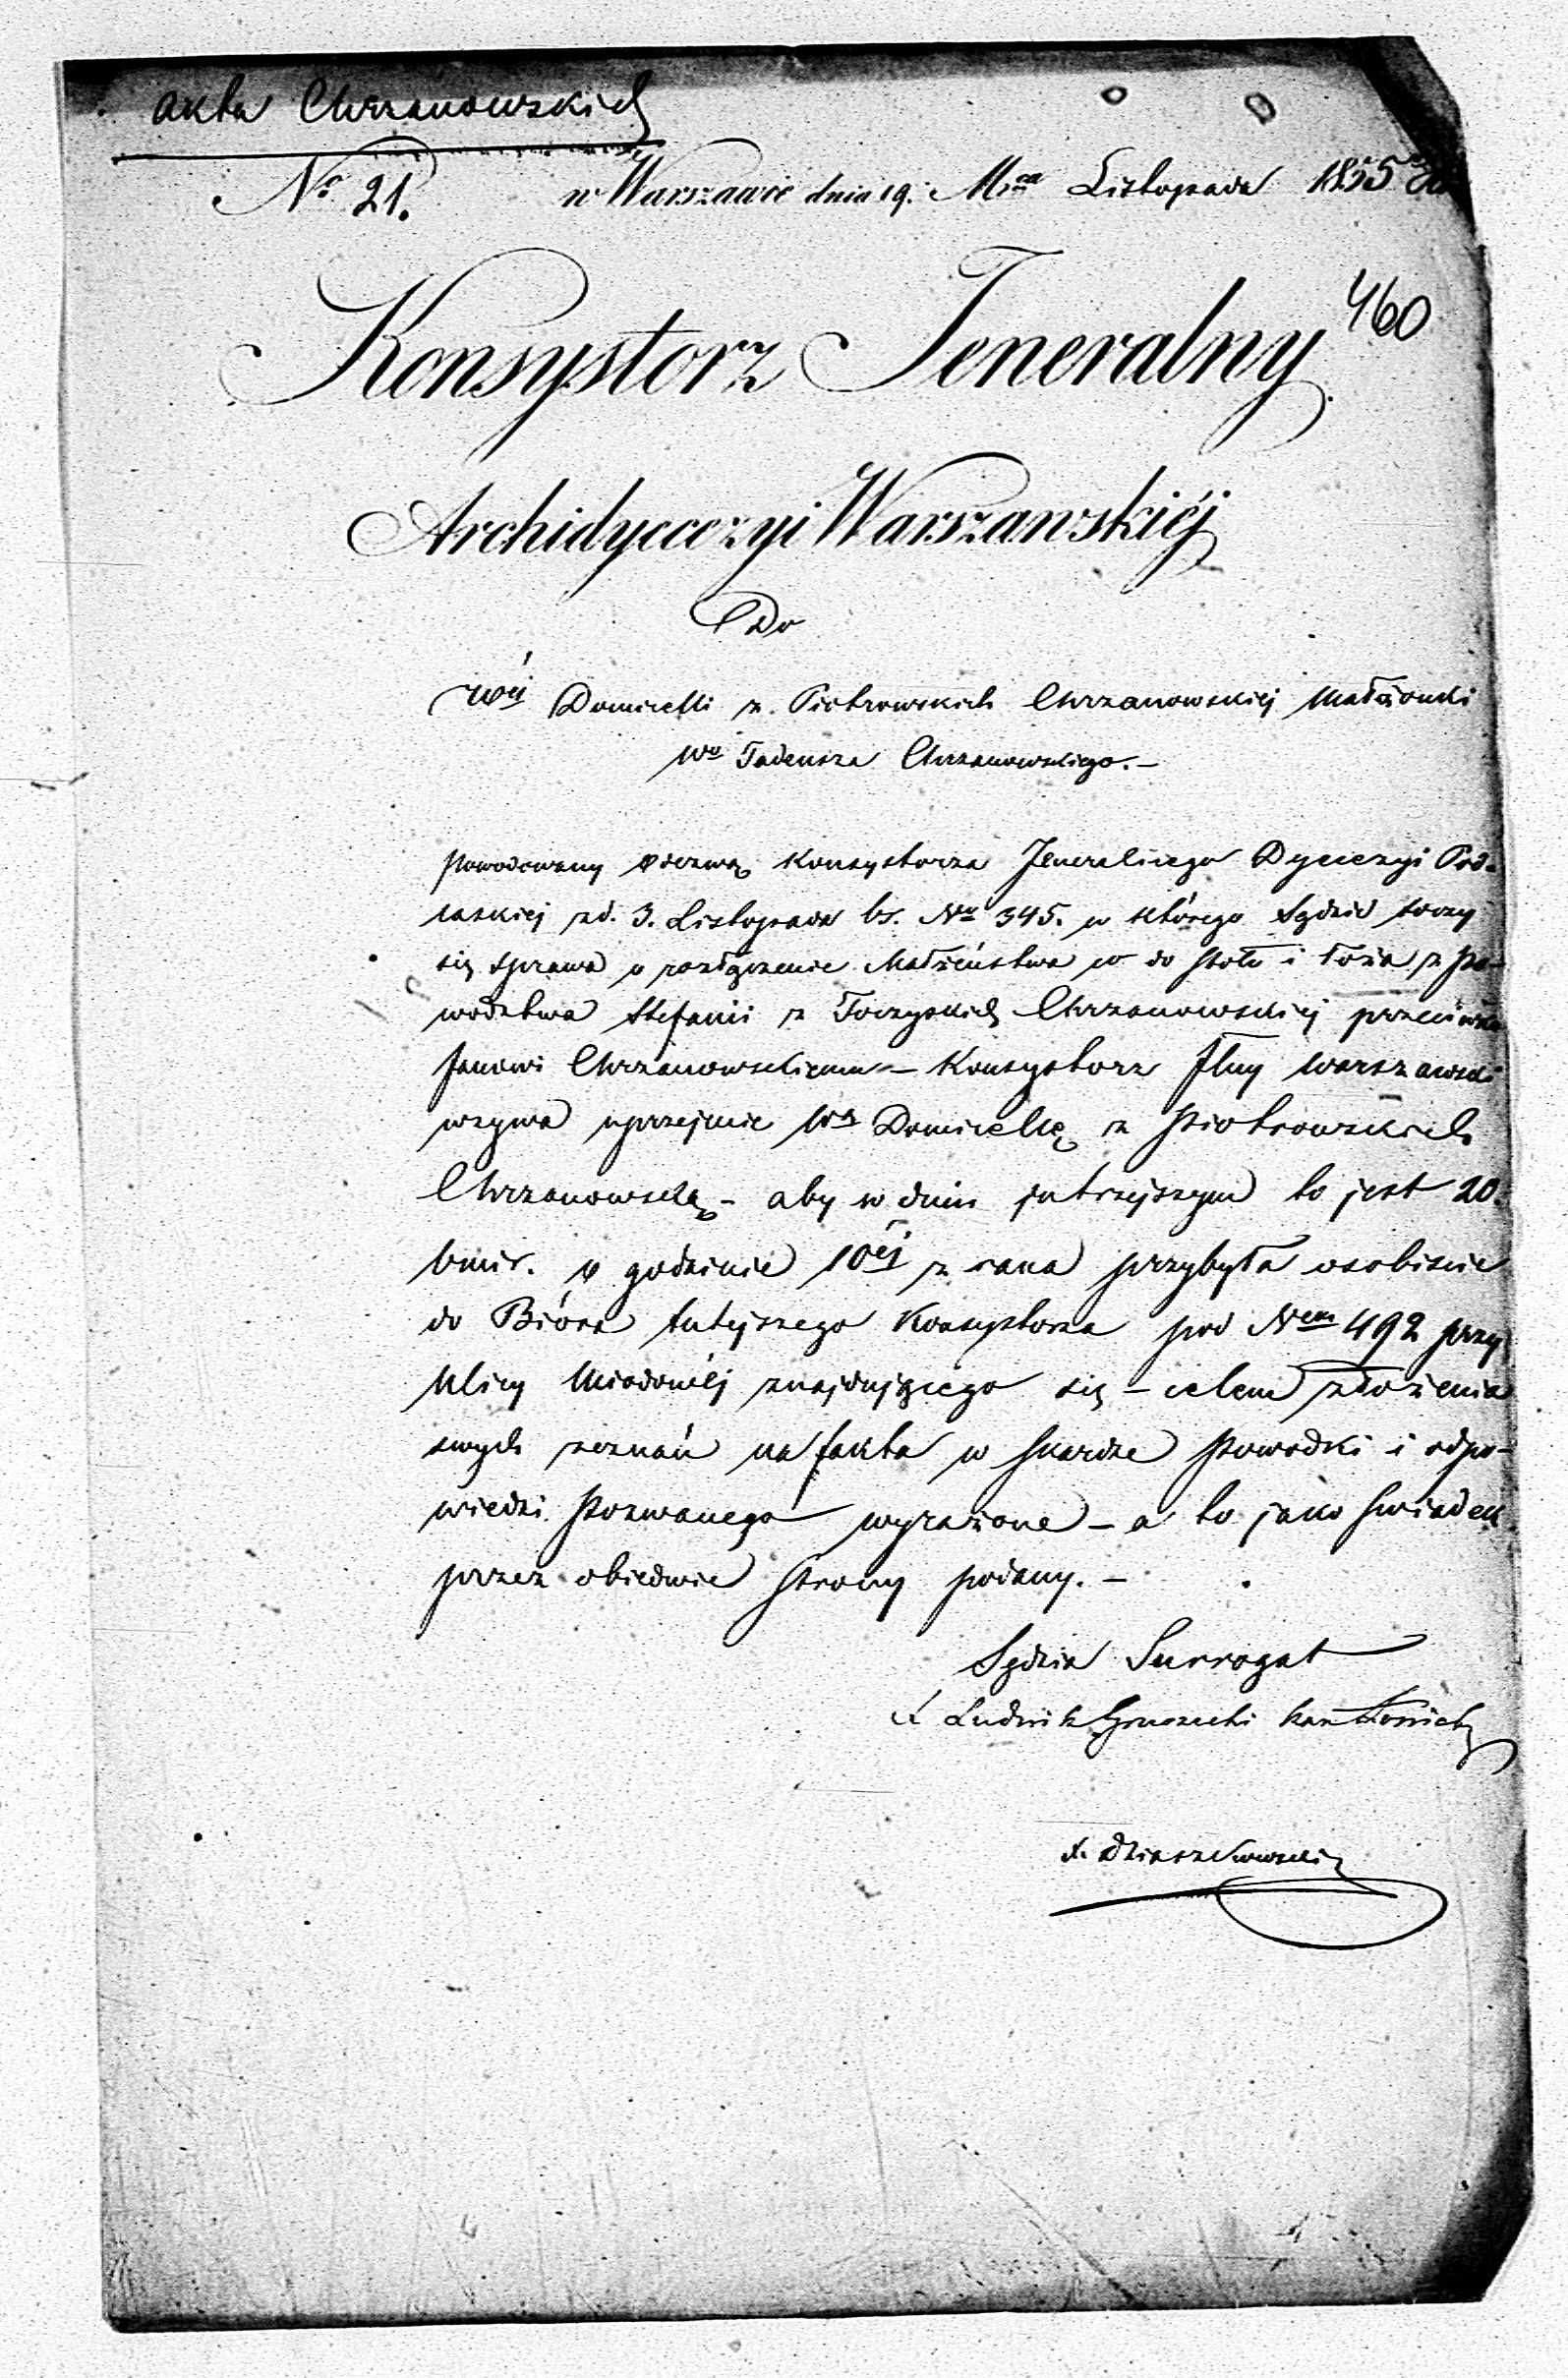 Akta Chrzanowskich
No 21. w Warszawie dnia 19. Mca Listopada 1855
460
Konsystorz Jeneralny
Archidyecezyi Warszawskiéj
Do
Wéj Domicelli z Piotrowskich Chrzanowskiej Małżonki
Wo Tadeusza Chrzanowskiego.–
Powodowany odezwą Konsystorza Jeneralnego Dyecezyi Pod-
laskiej zd. 3. Listopada br. No 345. w którego Sądzie toczy
się sprawa o rozłączenie Małżeństwa co do stołu i łoża z po-
wództwa Stefanii z Toczyskich Chrzanowskiej przeciwko
Janowi Chrzanowskiemu – Konsystorz Jlny Warszawski
wzywa uprzejmie Wą Domicellę z Piotrowskich
Chrzanowską – aby w dniu jutrzejszym to jest 20.
bmir. o godzinie 10éj z rana przybyła osobiście
do Bióra tutejszego Konsystorza pod Nem 492 przy
Ulicy Miodowéj znajdującego się – celem złożenia
swych zeznań na fakta w skardze Powodki i odpo-
wiedzi Pozwanego wyrażone – a to jako świadek
przez obiedwie strony podany. –
Sędzia Surrogat
X Ludwik Kan
X.